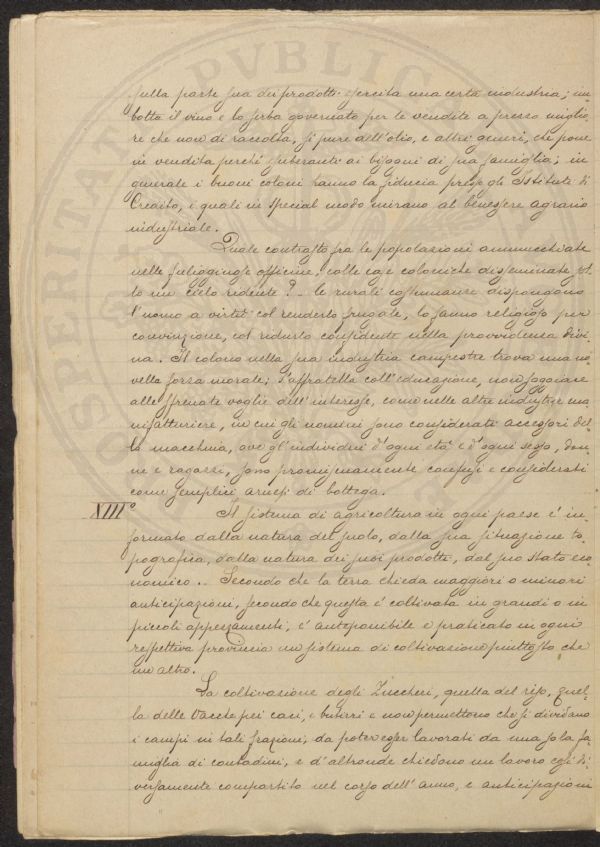 sulla parte sua dei prodotti esercita una certa industria; im
botta il vino e lo serba governato per le vendite a prezzo miglio
re che non di raccolta, si pure dell'olio, e altri generi, che pone
in vendita perchè suberante ai bisogni di sua famiglia; in
generale i buoni coloni hanno la fiducia presso gli Istituti di
Credito, e quali in special modo mirano al benessere agrario
industriale.
Quale contrasto fra le popolazioni ammucchiate
nelle fuligginose officine! colle case coloniche disseminate sot
to un cielo ridente? _ le rurali costumanze dispongono
l'uomo a virtù col renderlo frugale, lo fanno religioso per
convinzione, col ridurlo confidente nella provvidenza divi
na. Il colono nella sua industria campestre trova una no
vella forza morale; s'affratella coll'educazione, non soggiace
alle sfrenate voglie dell'interesse, come nelle altre industrie ma
nifatturiere, in cui gli uomini sono considerati accessori del
la macchina, ove gl'individui d'ogni età e d'ogni sesso, don
ne e ragazzi, sono promiscuamente confusi e considerati
come semplici arnesi di bottega.
XIIIº Il sistema di agricoltura in ogni paese è in
formato dalla natura del suolo, dalla sua situazione to
pografica, dalla natura dei suoi prodotti, dal suo stato eco
nomico .. Secondo che la terra chieda maggiori o minori
anticipazioni, secondo che questa è coltivata in grandi o in
piccoli appezzamenti, è anteponibile e praticato in ogni
respettiva provincia un sistema di coltivazione piuttosto che
un altro.
La coltivazione degli Zuccheri, quella del riso, quel
la delle Vacche pei caci, e butirri e non permettono che si dividano
i campi in tali frazioni, da poter esser lavorati da una sola fa
miglia di contadini, e d'altronde chiedono un lavoro così di
versamente compartito nel corso dell'anno, e anticipazioni